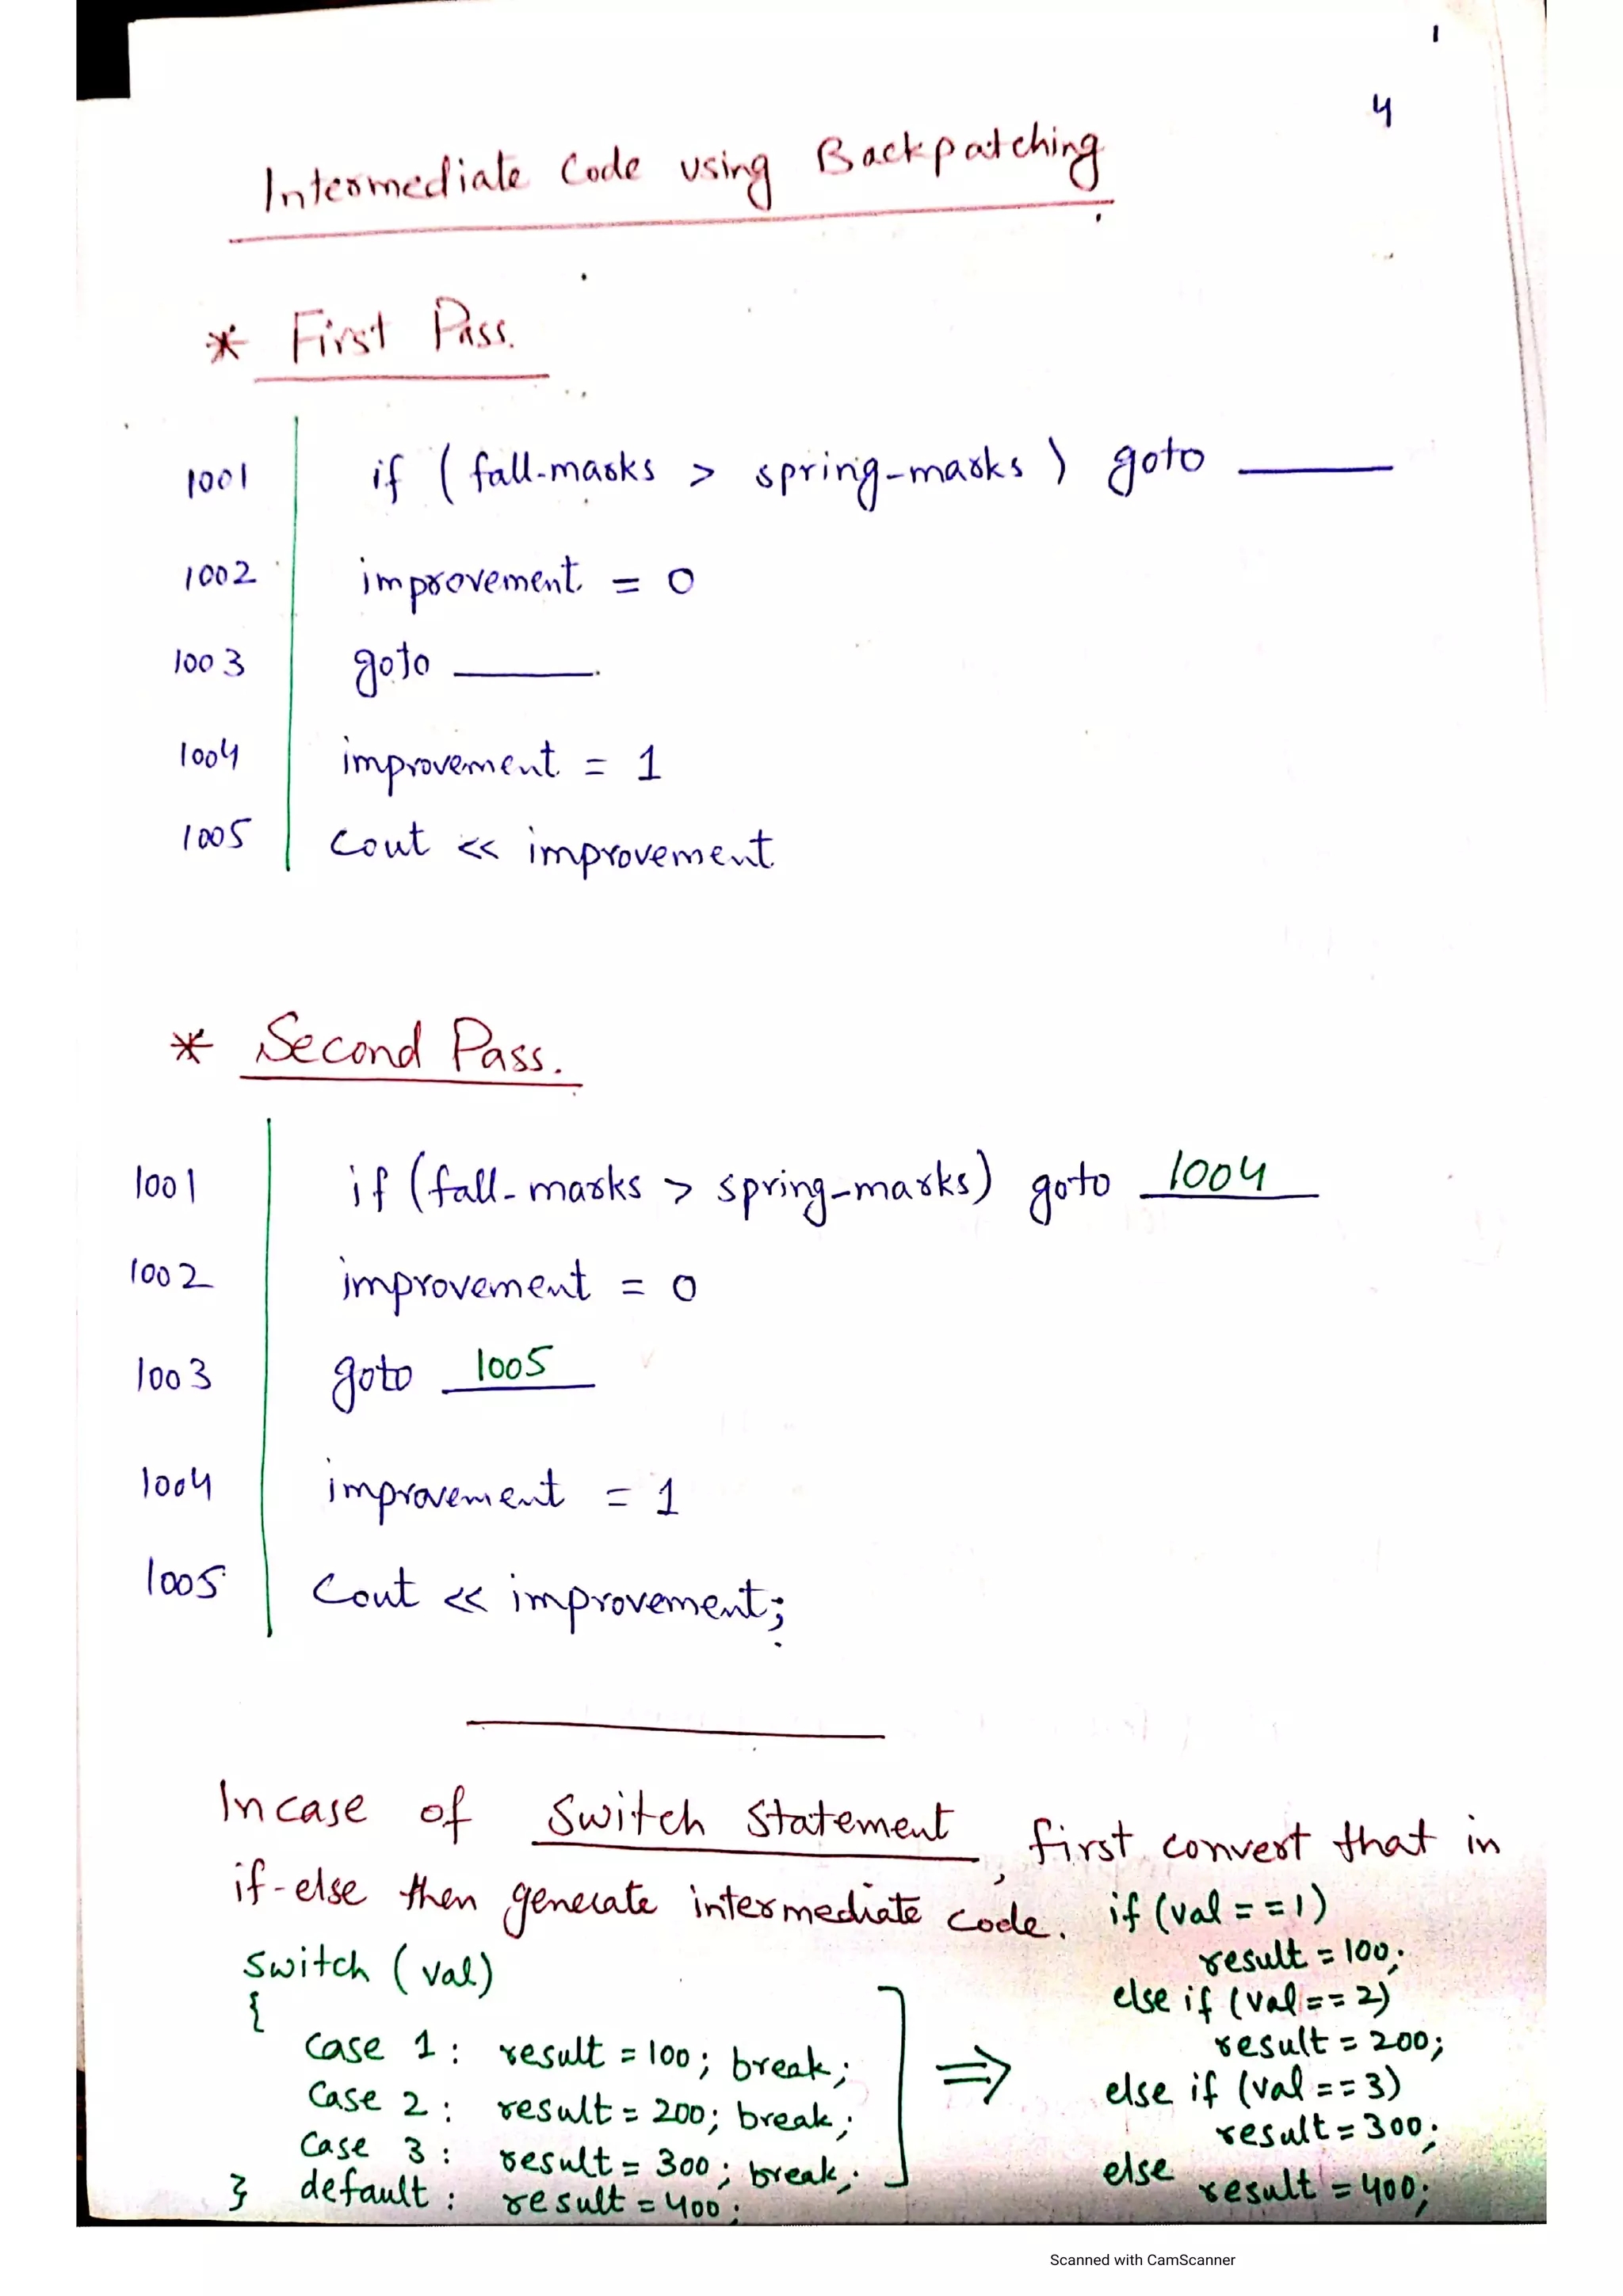 1
4
Intermediate Code using Backpatching
* First Pass.
1001 if (fall-marks > spring-marks) goto ______
1002 improvement = 0
1003 goto ______.
1004 improvement = 1
1005 Cout << improvement
* Second Pass.
1001 if (fall-marks > spring-marks) goto 1004
1002 improvement = 0
1003 goto 1005
1004 improvement = 1
1005 Cout << improvement;
Incase of Switch Statement, first convert that in
if-else then generate intermediate code.
switch (val)
{
case 1: result = 100; break;
Case 2: result = 200; break;
Case 3: result = 300; break;
} default: result = 400;
⇒
if (val == 1)
result = 100;
else if (val == 2)
result = 200;
else if (val == 3)
result = 300;
else result = 400;
Scanned with CamScanner